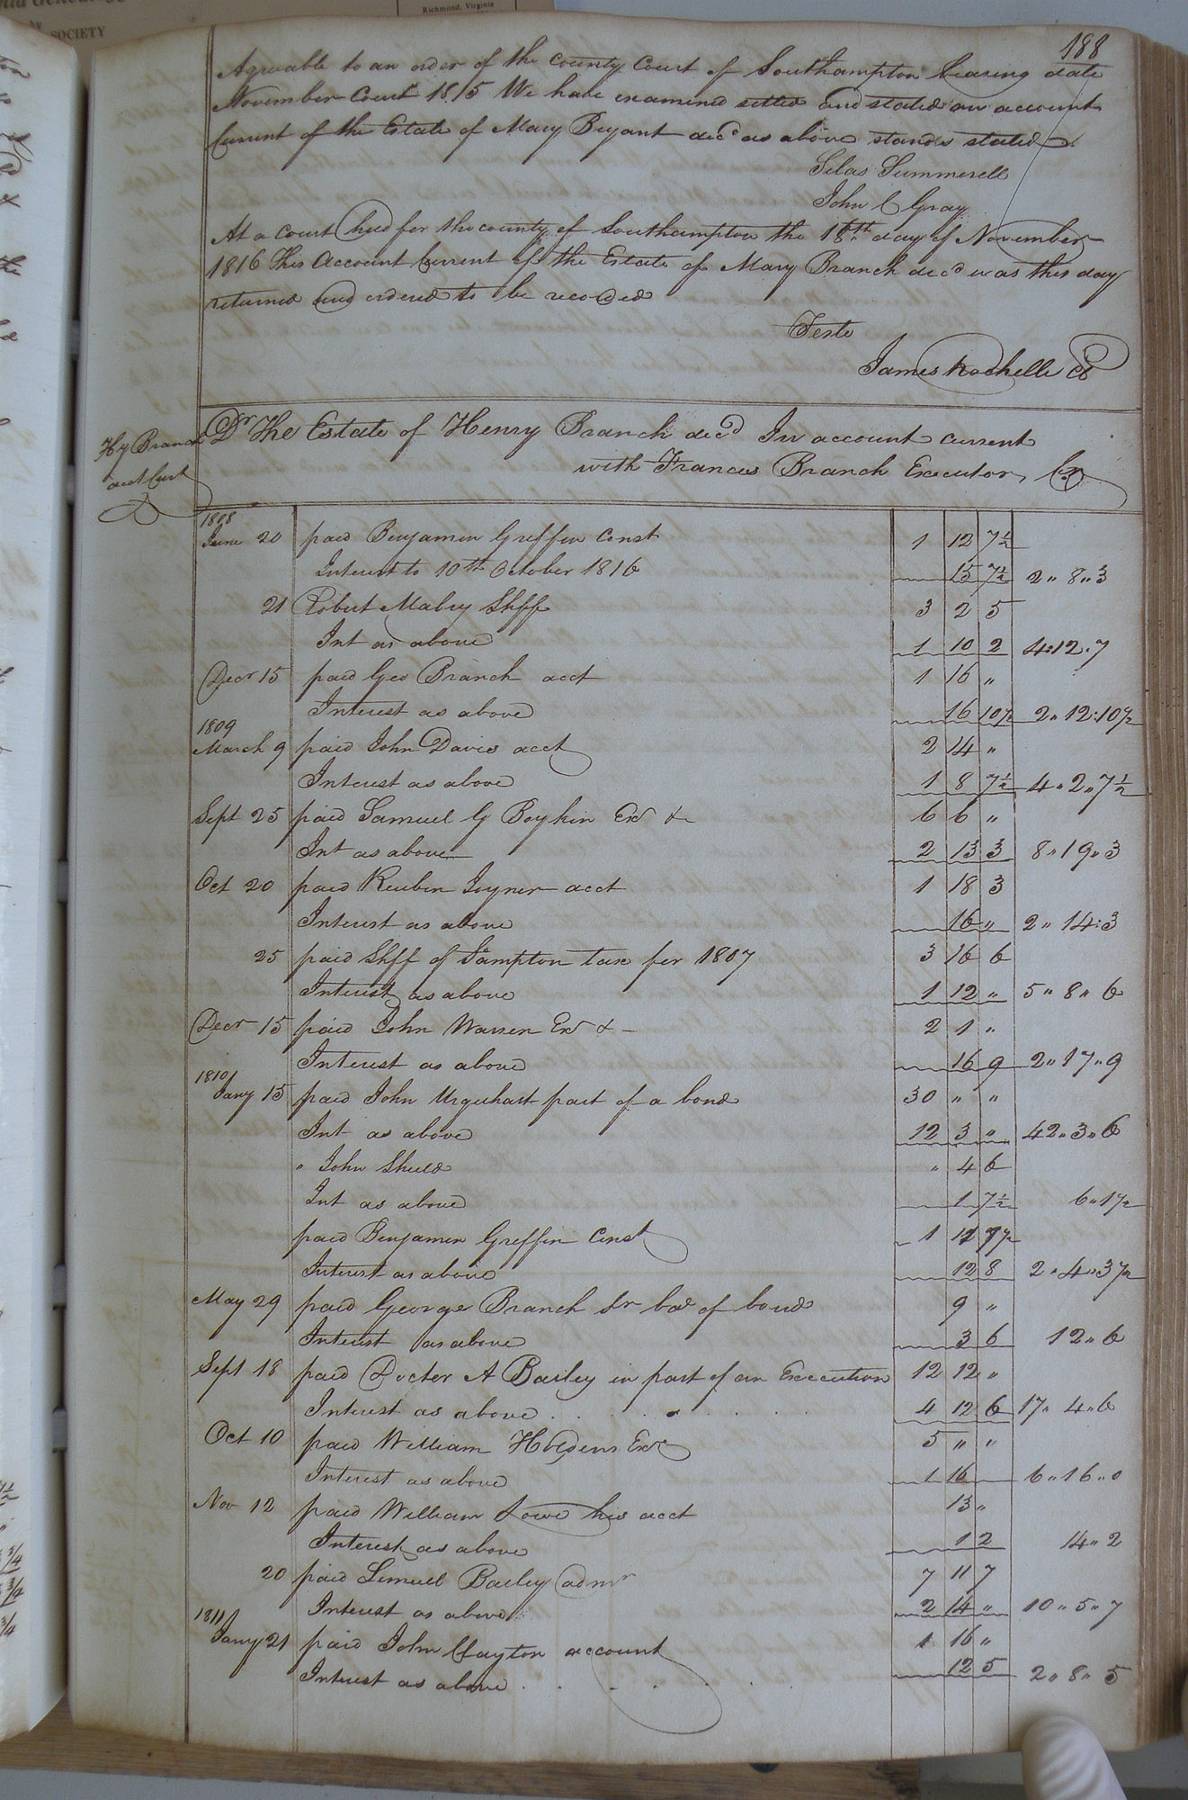 SOCIETY
Richmond, Virginia
188
Agreeable to an order of the County Court of Southampton bearing date
November Court 1815 We have examined settled and stated an account
Current of the Estate of Mary Bryant decd as above stands stated
Silas Summerell
John C Gray
At a Court held for the county of Southampton the 18th day of November
1816 This Account Current of the Estate of Mary Branch decd was this day
returned and ordered to be recorded
Teste
James Rochelle
Hy Branch
acct Curt
Dr The Estate of Henry Branch decd In account current
with Frances Branch Executor, Cr
1808
June 20 paid Benjamin Griffin Const 1 12 7½
Interest to 10th October 1816 15 7½ 2 " 8 " 3
21 Robert Mabry Shff 3 2 5
Int as above 1 10 2 4 " 12 " 7
Decr 15 paid Geo Branch acct 1 16 "
Interest as above 16 10½ 2 " 12 : 10½
1809
March 9 paid John Davis acct 2 14 "
Interest as above 1 8 7½ 4 " 2 " 7½
Sept 25 paid Samuel G Boykin Exr &c 6 6 "
Int as above 2 13 3 8 " 19 " 3
Oct 20 paid Reuben Joyner acct 1 18 3
Interest as above 16 " 2 " 14 : 3
25 paid Shff of Sampton tax for 1807 3 16 6
Interest as above 1 12 " 5 " 8 " 6
Decr 15 paid John Warren Exr & - 2 1 "
Interest as above 16 9 2 " 17 " 9
1810
Jany 15 paid John Urquhart part of a bond 30 " "
Int as above 12 3 " 42 " 3 " 6
" John Shield " 4 6
Int as above 1 7½ 6 " 1½
paid Benjamin Griffin Const 1 11 7½
Interest as above 12 8 2 " 4 " 3½
May 29 paid George Branch Sr bal of bond 9 "
Interest as above 3 6 12 " 6
Sept 18 paid Docter A Bailey in part of an Execution 12 12 "
Interest as above 4 12 6 17 " 4 " 6
Oct 10 paid William Exr 5 " "
Interest as above 1 16 6 " 16 " 0
Nov 12 paid William Lowe his acct 13 "
Interest as above 1 2 14 " 2
20 paid Lemuel Bailey admr 7 11 7
Interest as above 2 14 " 10 " 5 " 7
1811
Jany 21 paid John Clayton account 1 16 "
Interest as above 12 5 2 " 8 " 5